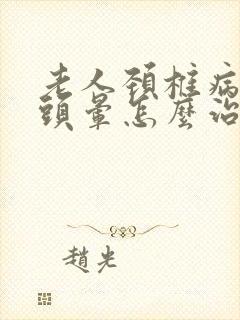 老人頚椎病
頭暈怎麼治
趙光